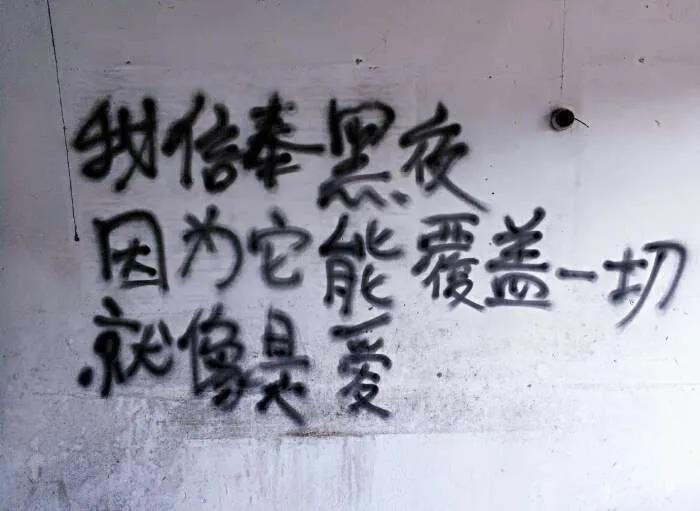 我信奉黑夜
因为它能覆盖一切
就像是爱